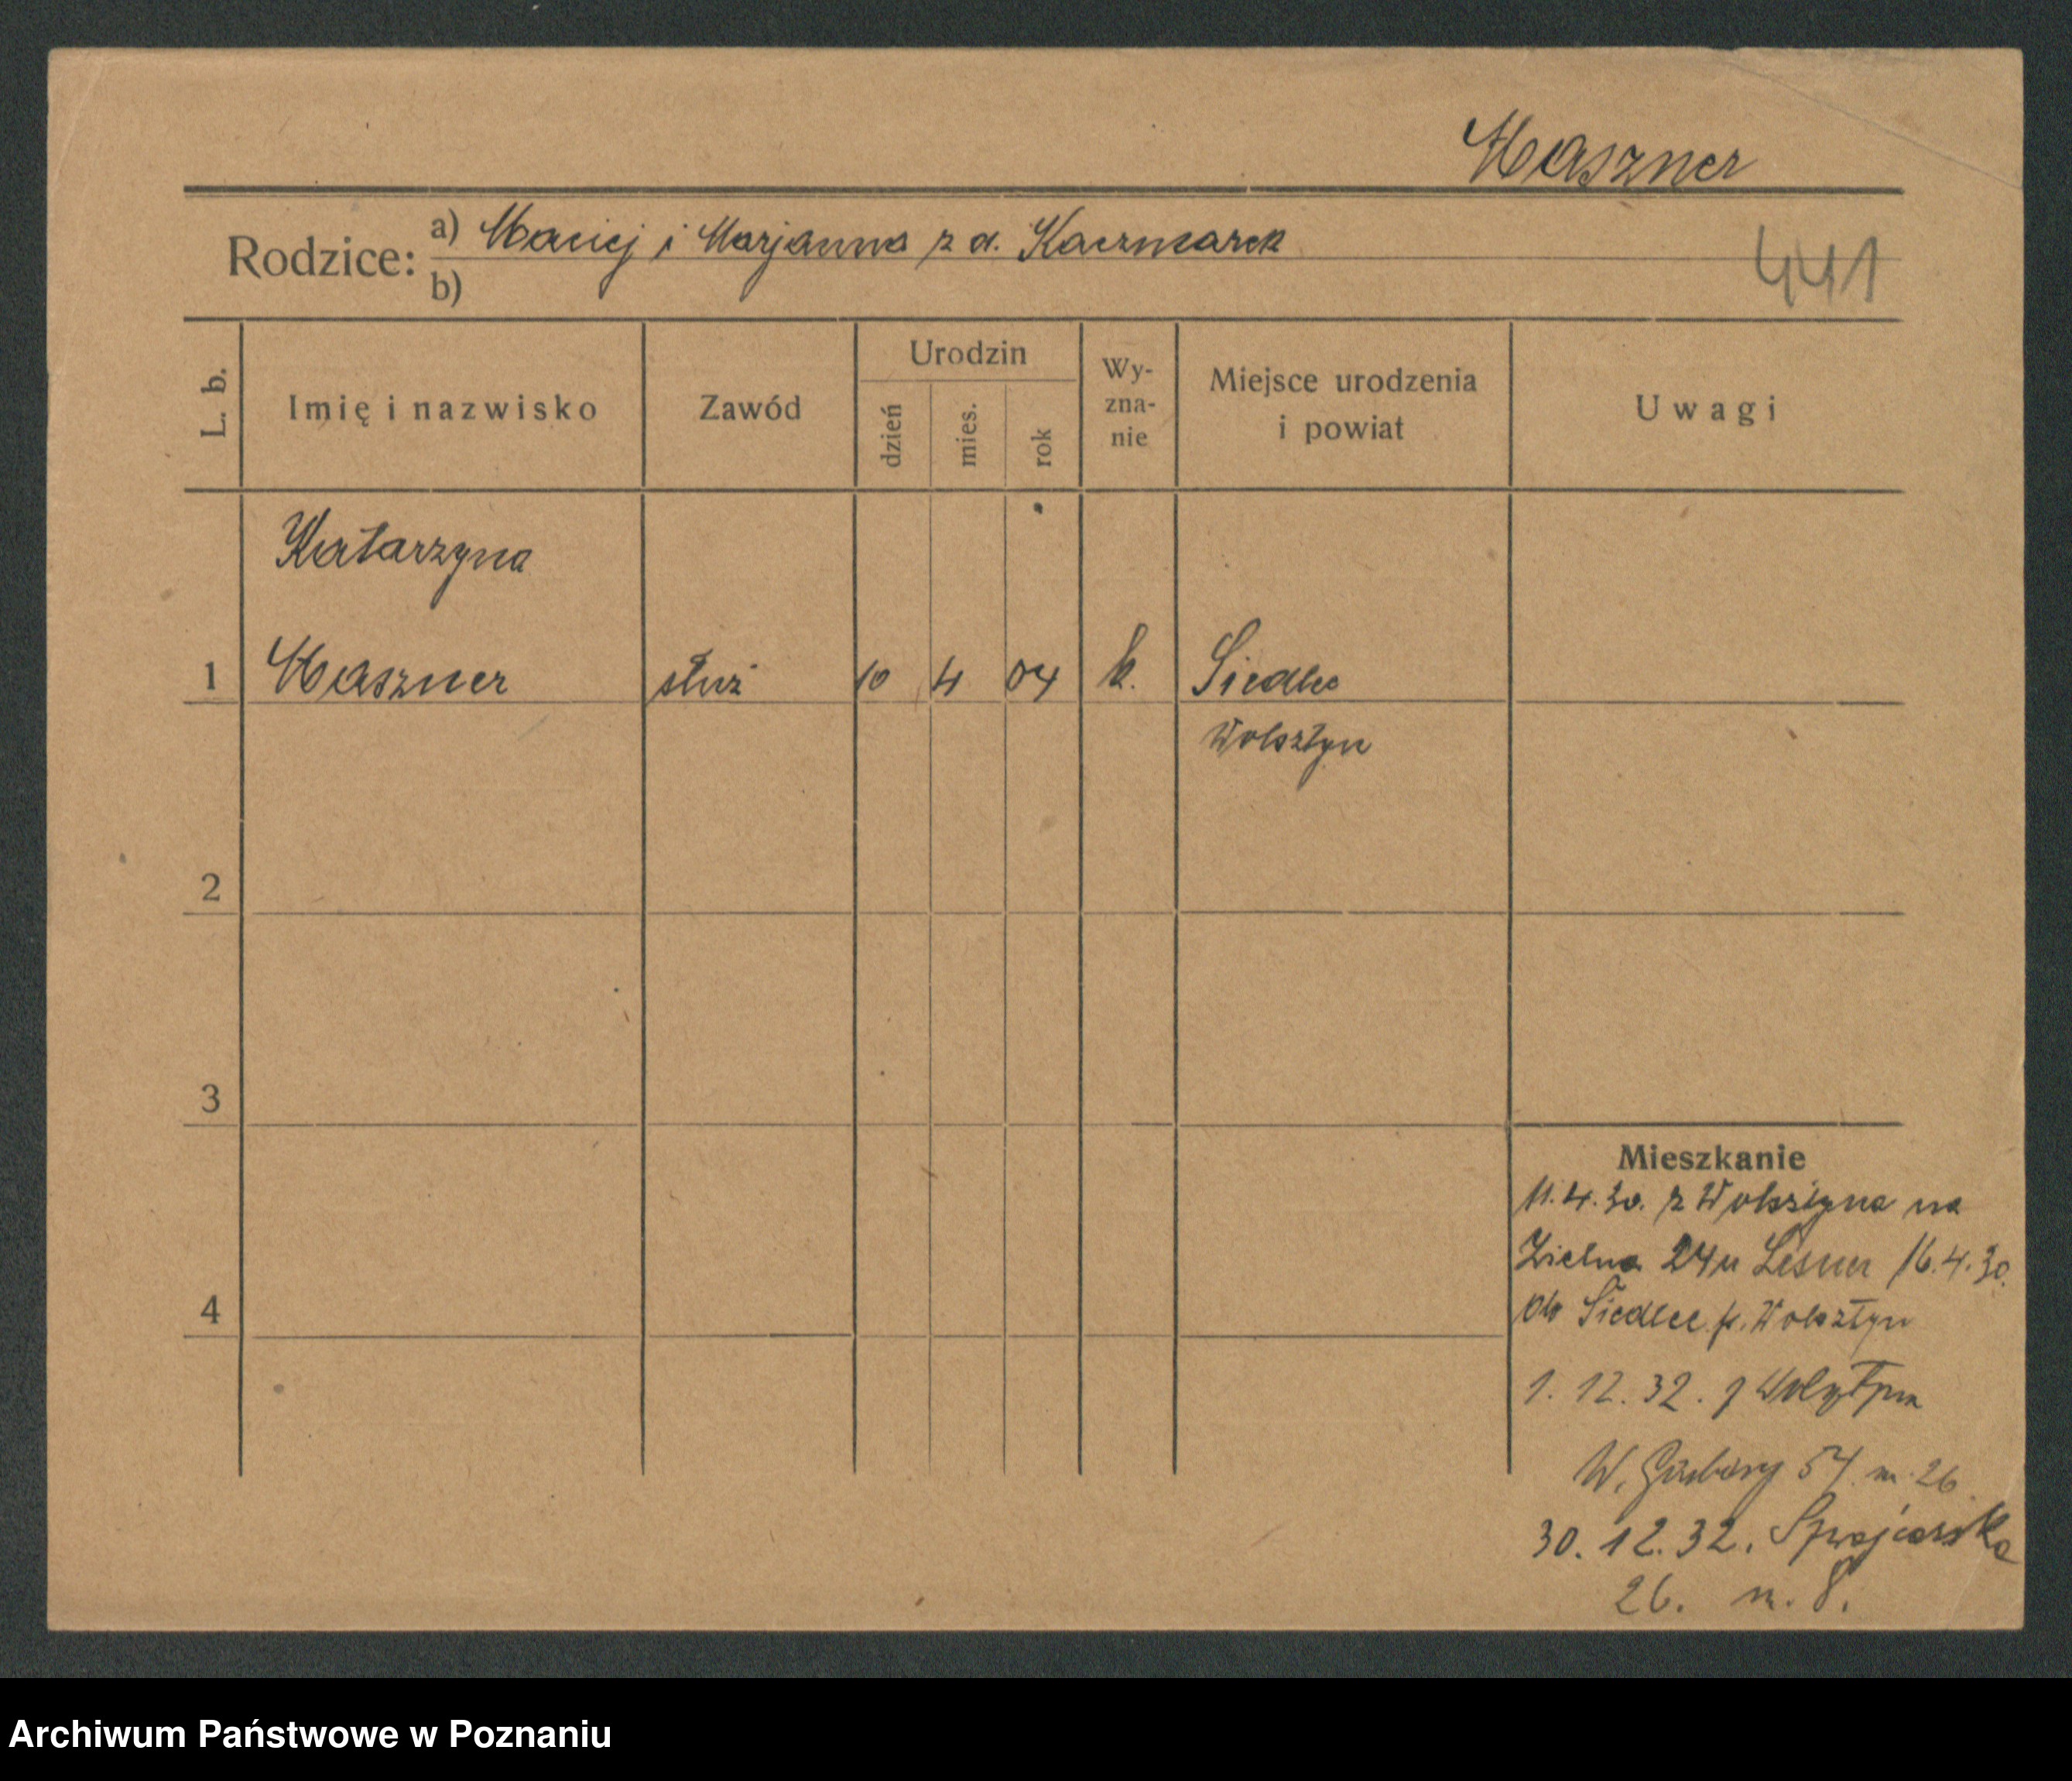 Maszner
Rodzice: a) Maciej i Marjanna z d. Kaczmarek
b)
441
L. b.
Imię i nazwisko
Zawód
Urodzin
dzień
mies.
rok
Wy-
zna-
nie
Miejsce urodzenia
i powiat
Uwagi
Katarzyna
1 Maszner służ 10 4 04 k. Siedlec
Wolsztyn
2
3
4
Mieszkanie
11.4.30. z Wolsztyna na
Zielna 24 u Lesner 16.4.30.
do Siedlec p. Wolsztyn
1. 12. 32. z Wolsztyna
W. Garbary 54 m. 26
30. 12. 32. Szwajcarska
26. m. 8.
Archiwum Państwowe w Poznaniu